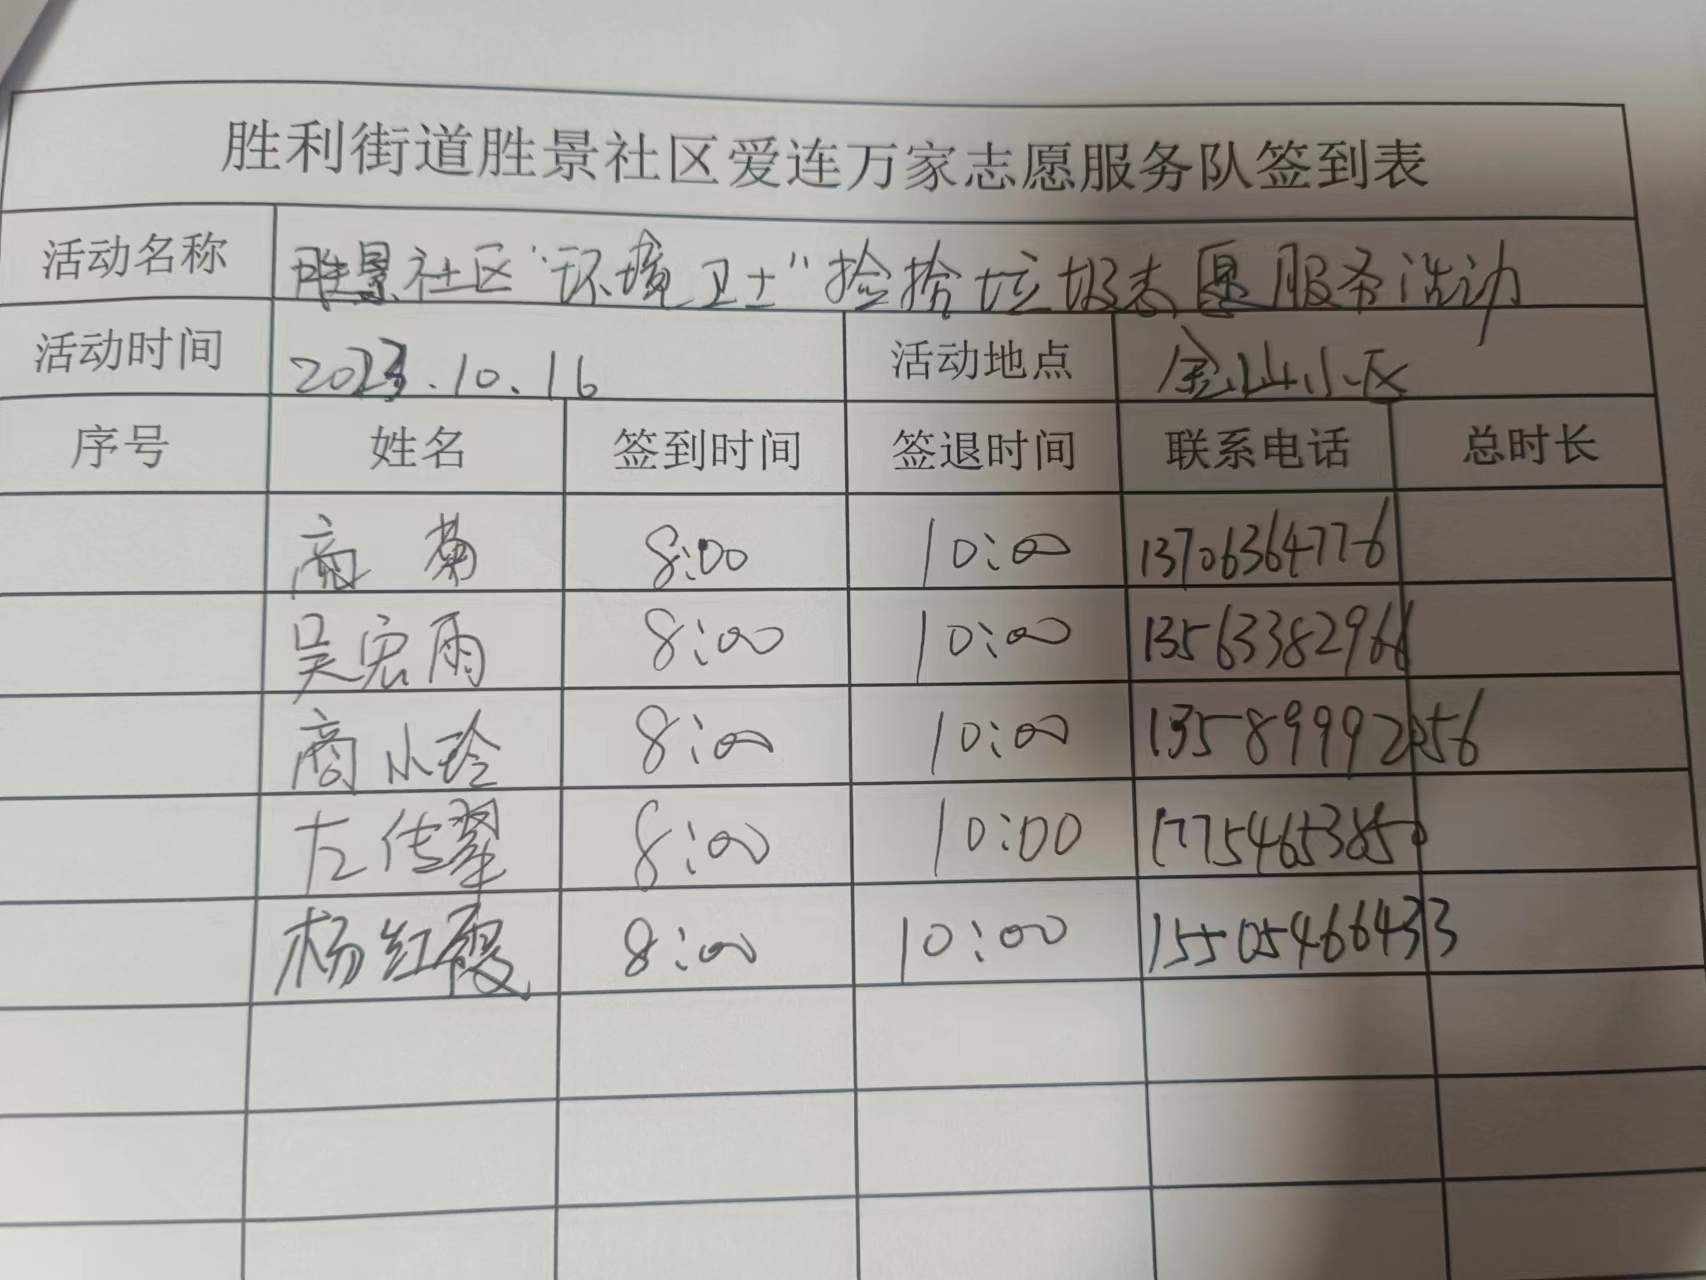 胜利街道胜景社区爱连万家志愿服务队签到表
活动名称 胜景社区“环境卫士”捡拾垃圾志愿服务活动
活动时间 2023.10.16 活动地点 金山小区
序号 姓名 签到时间 签退时间 联系电话 总时长
商菊 8:00 10:00 13706364776
吴宏雨 8:00 10:00 13563382966
商小玲 8:00 10:00 13589992256
左传翠 8:00 10:00 17754653850
杨红霞 8:00 10:00 15505466433